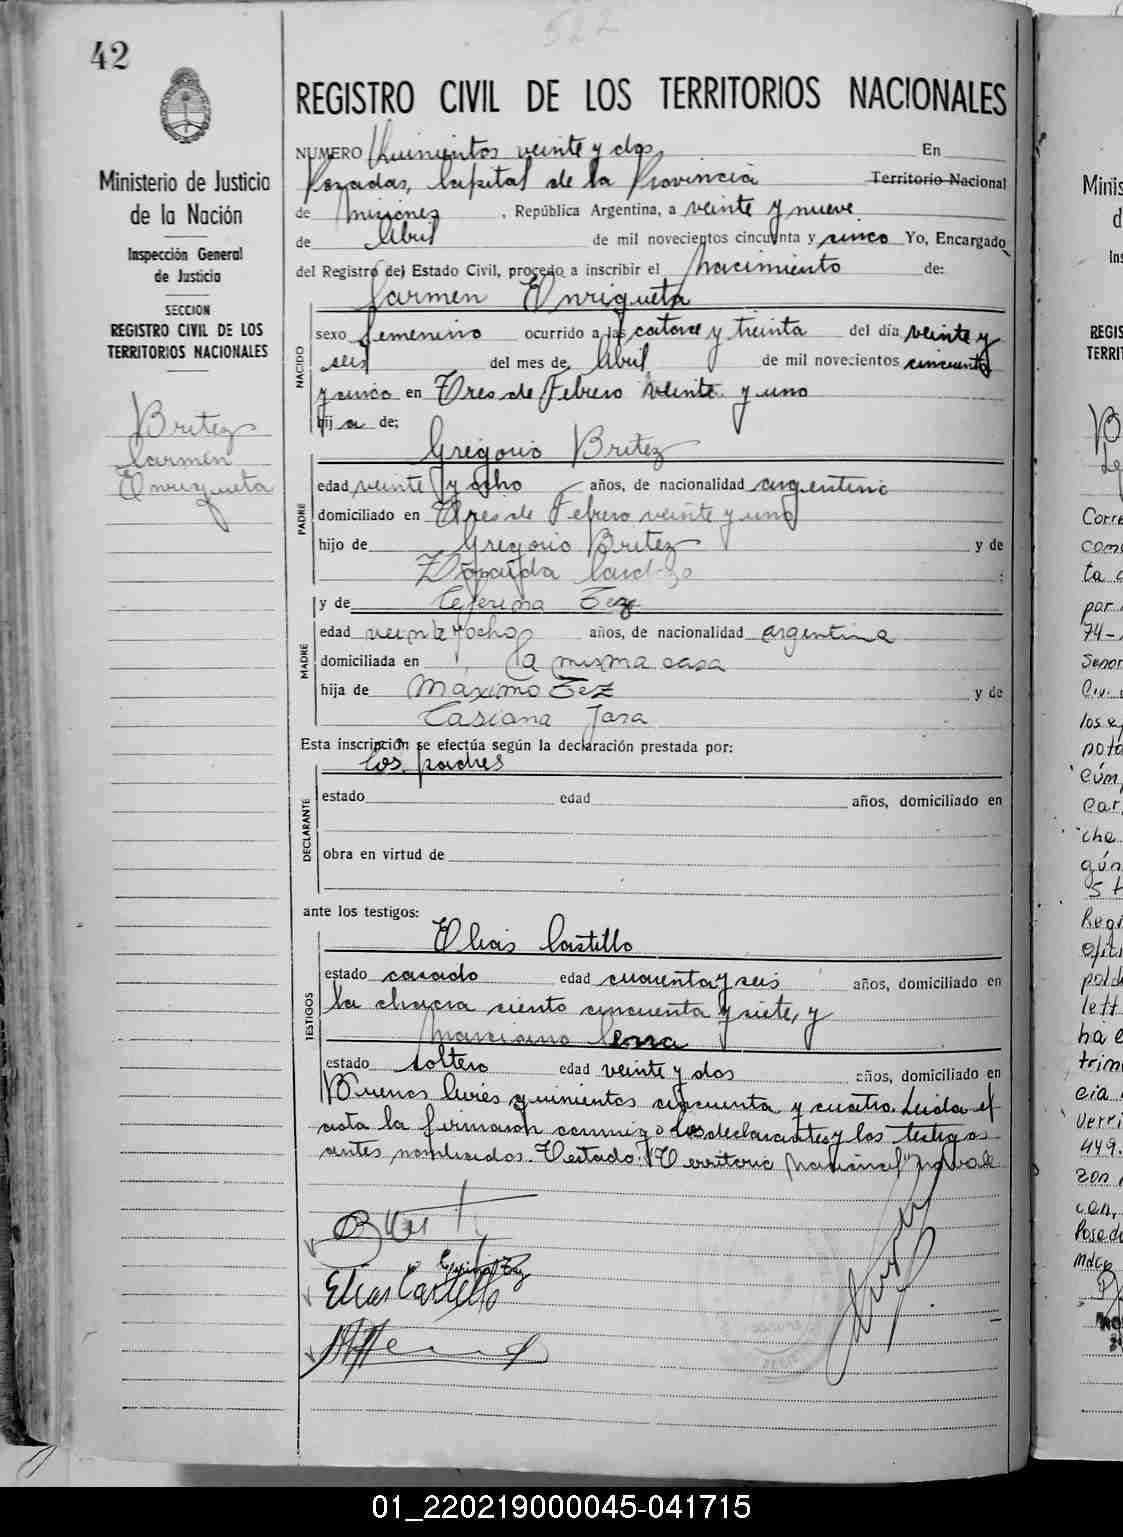 522
42
REGISTRO CIVIL DE LOS TERRITORIOS NACIONALES
Ministerio de Justicia
de la Nación
Inspección General
de Justicia
SECCION
REGISTRO CIVIL DE LOS
TERRITORIOS NACIONALES
Britez
Carmen
Enriqueta
NUMERO Quinientos veinte y dos En
Posadas, Capital de la Provincia Territorio Nacional
de Misiones, República Argentina, a veinte y nueve
de Abril de mil novecientos cincuenta y cinco Yo, Encargado
del Registro del Estado Civil, procedo a inscribir el Nacimiento de:
Carmen Enriqueta
NACIDO
sexo femenino ocurrido a las catorce y treinta del día veinte y
seis del mes de Abril de mil novecientos cincuenta
y cinco en Tres de Febrero veinte y uno
hij a de:
Gregorio Britez
PADRE
edad veinte y ocho años, de nacionalidad argentino
domiciliado en Tres de Febrero veinte y uno
hijo de Gregorio Britez y de
Cardozo
y de Ceferina Tez
MADRE
edad veinte y ocho años, de nacionalidad argentina
domiciliada en la misma casa
hija de Máximo Tez y de
Casiana Jara
Esta inscripción se efectúa según la declaración prestada por:
los padres
DECLARANTE
estado edad años, domiciliado en
obra en virtud de
ante los testigos:
Elias Castillo
TESTIGOS
estado casado edad cuarenta y seis años, domiciliado en
la chacra siento cincuenta y siete, y
Marciano
estado soltero edad veinte y dos años, domiciliado en
Buenos Aires quinientos cincuenta y cuatro. Leida el
acta la firmaron conmigo los declarantes y los testigos
antes nombrados. Testado: "Territorio Nacional" no vale
Elias Castillo
01_220219000045-041715